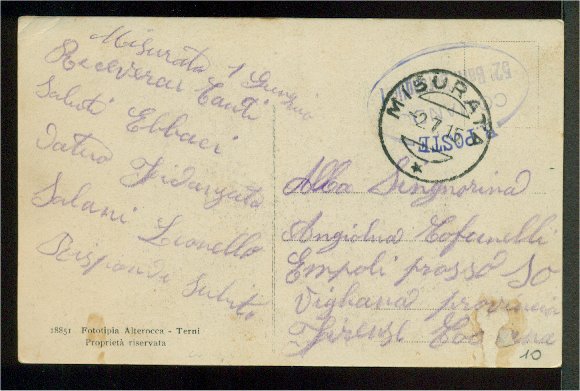 Misurata 1 Giugnio
Riceverai Tanti
Saluti E Bbaci
dal tuo Fidanzato
Salani Lionello
Rispondi Subito
18851 Fototipia Alterocca - Terni
Proprietà riservata
MISURATA
2.7.15
POSTE
52º
Alla Singnorina
Angiolina Cofanelli
Empoli presso
Vighana provincia
Firenze
10